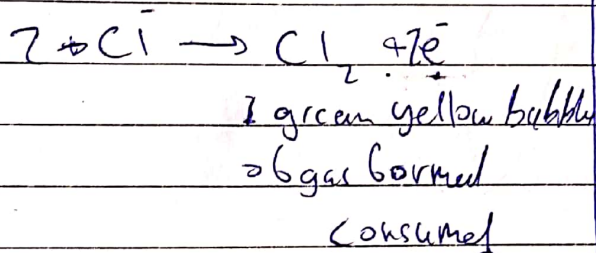 2 Cl⁻ → Cl₂ + 2e⁻
green yellow bubbles
of gas formed
consumed